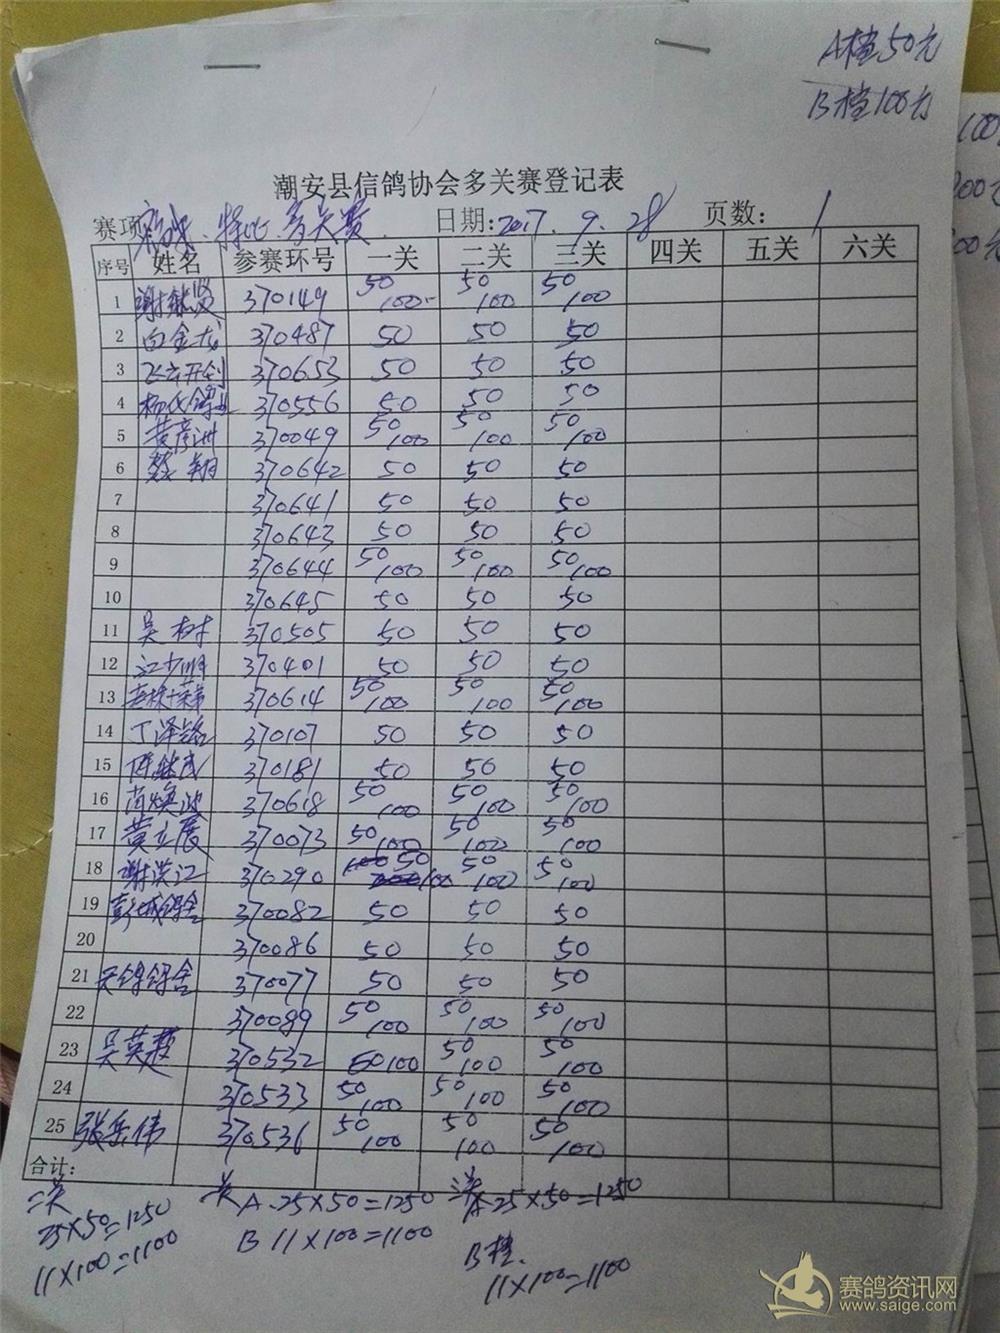 A档50元
B档100元
潮安县信鸽协会多关赛登记表
赛项: 特比 多关赛 日期:2017.9.28 页数: 1
序号 姓名 参赛环号 一关 二关 三关 四关 五关 六关
1 谢继贤 370149 50 100 50 100 50 100
2 白金龙 370487 50 50 50
3 飞云开创 370653 50 50 50
4 杨氏鸽业 370556 50 50 50
5 黄彦洲 370049 50 100 50 100 50 100
6 蔡翔 370642 50 50 50
7 370641 50 50 50
8 370643 50 50 50
9 370644 50 100 50 100 50 100
10 370645 50 50 50
11 吴树 370505 50 50 50
12 江少明 370401 50 50 50
13 370614 50 100 50 100 50 100
14 丁泽铭 370107 50 50 50
15 陈继茂 370181 50 50 50
16 肖焕波 370618 50 100 50 100 50 100
17 黄立展 370073 50 100 50 100 50 100
18 谢洪江 370290 50 100 50 100 50 100
19 彭城鸽舍 370082 50 50 50
20 370086 50 50 50
21 天锦鸽舍 370077 50 50 50
22 370089 50 100 50 100 50 100
23 吴英超 370532 50 100 50 100 50 100
24 370533 50 100 50 100 50 100
25 张岳伟 370536 50 100 50 100 50 100
合计:
二关
25×50=1250
11×100=1100
一关 A.25×50=1250
B 11×100=1100
三关 A.25×50=1250
B档.
11×100=1100
100
赛鸽资讯网
www.saige.com